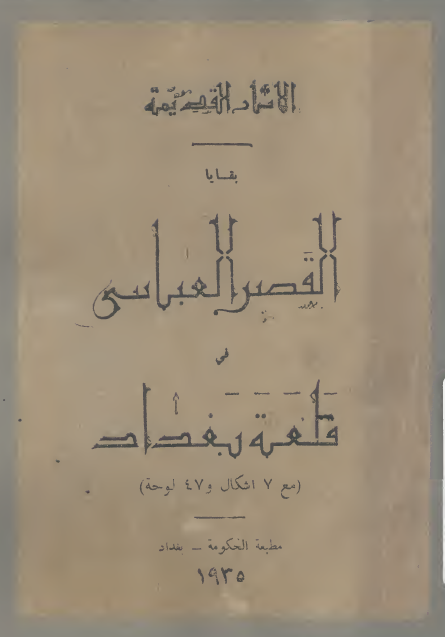 الاثار القديمة
بقايا
القصر العباسي
في
قلعة بغداد
(مع ٧ اشكال و٤٧ لوحة)
مطبعة الحكومة – بغداد
١٩٣٥